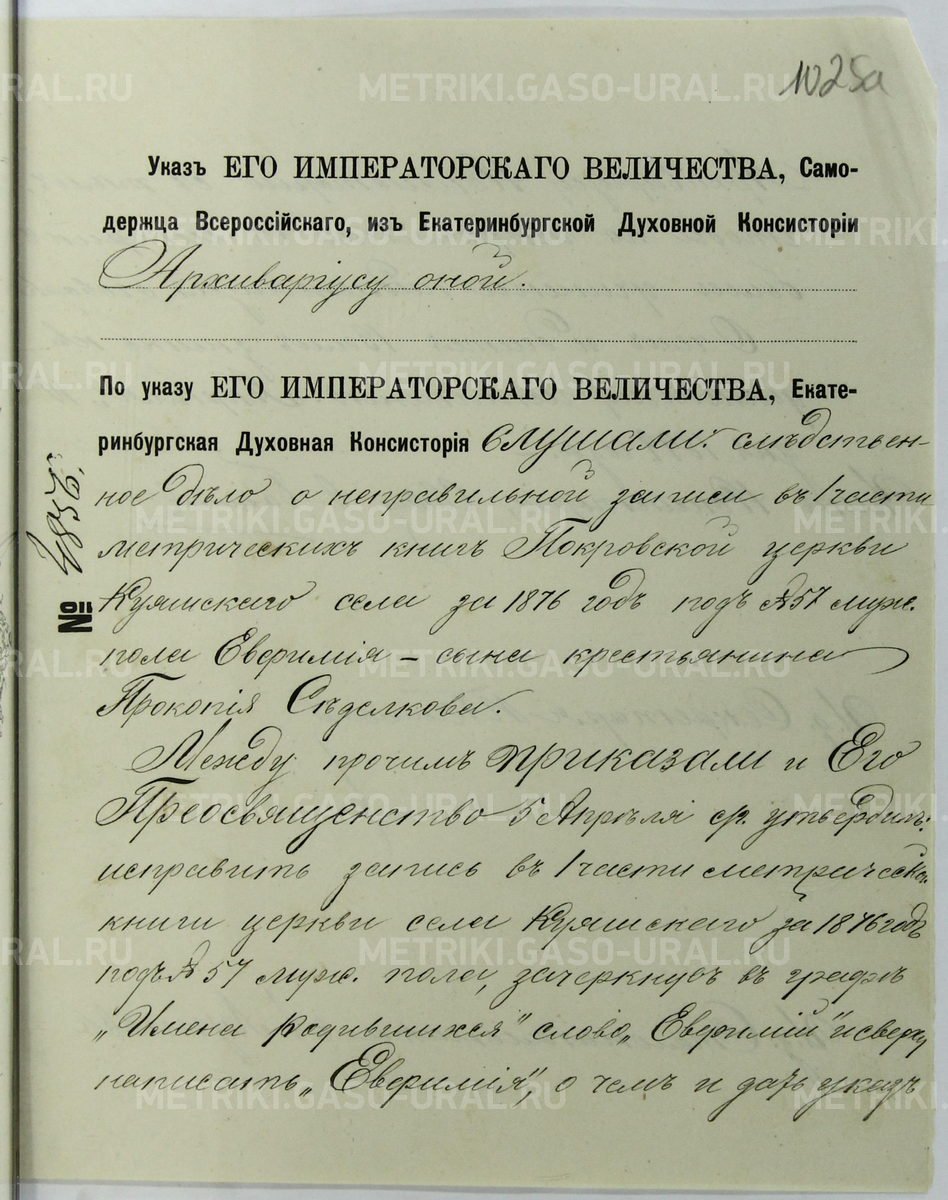 1025а
Указъ ЕГО ИМПЕРАТОРСКАГО ВЕЛИЧЕСТВА, Само-
держца Всероссійскаго, изъ Екатеринбургской Духовной Консисторіи
Архиваріусу оной.
По указу ЕГО ИМПЕРАТОРСКАГО ВЕЛИЧЕСТВА, Екате-
ринбургская Духовная Консисторія Слушали: слѣдствен-
ное дѣло о неправильной записи въ 1 части
метрическихъ книгъ Покровской церкви
Куяшскаго села за 1876 годъ подъ № 57 муж.
пола Евфимія – сына крестьянина
Прокопія Сѣделкова.
Между прочимъ приказали и Его
Преосвященство 5 Апрѣля ср. утвердилъ:
исправить запись въ 1 части метрической
книги церкви села Куяшскаго за 1876 годъ
подъ № 57 муж. пола, зачеркнувъ въ графѣ
„Имена родившихся" слово „Евфимій" и сверху
написать „Евфимія", о чемъ и дать указъ
№
METRIKI.GASO-URAL.RU